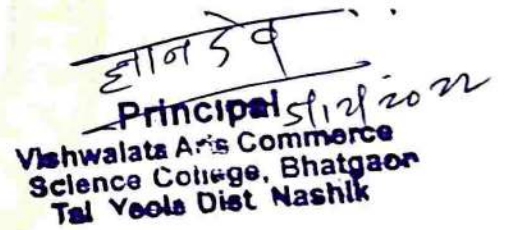 ज्ञानदेव
Principal 5/12/2022
Vishwalata Arts Commerce
Science College, Bhatgaon
Tal Yeola Dist Nashik